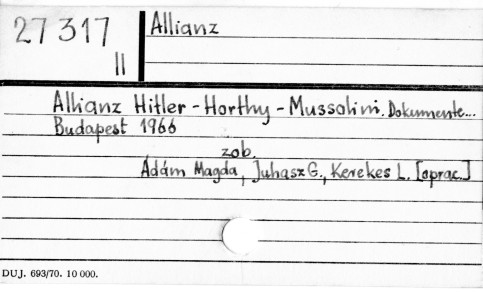 27317 Allianz
II
Allianz Hitler - Horthy - Mussolini. Dokumente...
Budapest 1966
zob.
Ádám Magda, Juhasz G., Kerekes L. [oprac.]
DUJ. 693/70. 10 000.